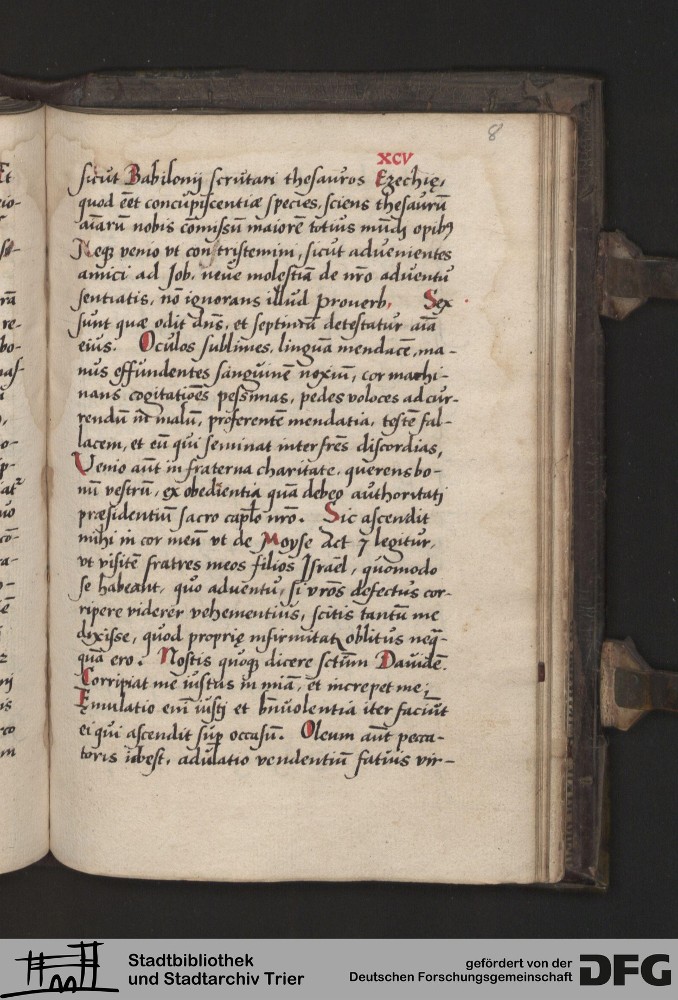 8
XCV
sicut Babilonij scrutari thesauros Ezechię,
quod eēt concupiscentiæ species, sciens thesaurū
aīarū nobis cōmissū maiorē totius mūdj opibꝰ
Neqꝫ venio vt contristemini, sicut aduenientes
amici ad Job, neue molestiā de nr̄o aduentu
sentiatis, nō ignorans illud prouerb, Sex
sunt quæ odit dn̄s, et septimū detestatur aīa
eius. Oculos sublimes, linguā mendacē, ma-
nus effundentes sanguinē noxiū, cor machi-
nans cogitatioēs pessimas, pedes voloces ad cur-
rendū malū, proferentē mendatia, testē fal-
lacem, et eū qui seminat inter frēs discordias,
Venio aūt in fraterna charitate, querens bo-
nū vestrū, ex obedientia quā debeo authoritatj
præsidentiū sacro cap̄lo nr̄o. Sic ascendit
mihi in cor meū vt de Moyse Act 7 legitur,
vt visitē fratres meos filios Israēl, quomodo
se habeant, quo aduentu, si vr̄os defectus cor-
ripere viderer vehementius, scitis tantū me
dixisse, quod proprię infirmitatꝭ oblitus neq̄-
quā ero. Nostis quoqꝫ dicere sctūm Dauidē.
Corripiat me iustus in mīa, et increpet me;
Emulatio enī iustj et bn̄uolentia iter faciūt
ei qui ascendit sup occasū. Oleum aūt pecca-
toris idest, adulatio vendentiū fatuis vir-
Stadtbibliothek
und Stadtarchiv Trier
gefördert von der
Deutschen Forschungsgemeinschaft
DFG